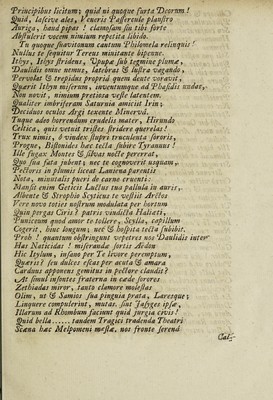 Principibus licitum; quid ni quoque furta Deorum!
Quid, lascive ales, Veneris Passercule plaustro
Auriga, haud pipas! clamosam sin tibi forte
Abstulerit vocem nimium repetita libido.
Tu quoque flavitonum cantum Philomela relinquis!
Nullus te sequitur Tereus minitante bipenne.
Ithys, Ithys stridens, Upupa sub tegmine plumæ,
Daulidis omne nemus, latebras & lustra vagando,
Pervolat & trepidus proprid quem dente voravit,
Quærit Ithyn miserum, inventumque ad Phasidis undas,
Non novit, nimium pretiosa veste latentem.
Qualiter imbriferam Saturnia amicit Irin;
Deciduos oculos Argi texente Minervd.
Tuque adeo horrendum crudelis mater, Hirundo
Celtica, quis vetuit tristes stridere querelas!
Trux nimis, ô vindex stupri truculenta sororis,
Progne, Bistonides hæc tecta subire Tyrannus!
Ille fugax Montes & silvas nocte pererrat,
Quo sua fata jubent; nec te cognoverit usquam,
Pectoris in plumis liceat Laniena parentis
Nota, minutalis pueri de carne cruenti:
Mansit enim Geticis Luctus tua pallula in auris,
Albente & Strophio Scyticus te vestiit Arctos
Vere novo toties nostrum modulata per hortum
Quin pergas Ciris? patris vindicta Haliæti,
Puniceum quod amor te tollere, Scylla, capillum
Cogerit, hinc longum; nec & hospita tecta subibit.
Proh! quantum obstringunt vepretres nos Daulidis inter
Has Naticidas! miseranda sortis Aëdon
Hic Itylum, insano per Te livore peremptum,
Quæris? seu dulces escas per acuta & amara
Carduus apponens gemitus in pectore claudit?
At simul insontes fraterna in cæde sorores
Zethiadas miror, tanto clamore molestas
Olim, ut & Samios sua pinguia prata, Laresque;
Linquere compulerint, mutas, sint Iasyges ipsæ,
Illarum ad Rhombum faciunt quid jurgia civis!
Quid bella ...... tandem Tragici tradenda Theatri
Scæna hæc Melpomeni mæstæ, nos fronte serend
Cal-